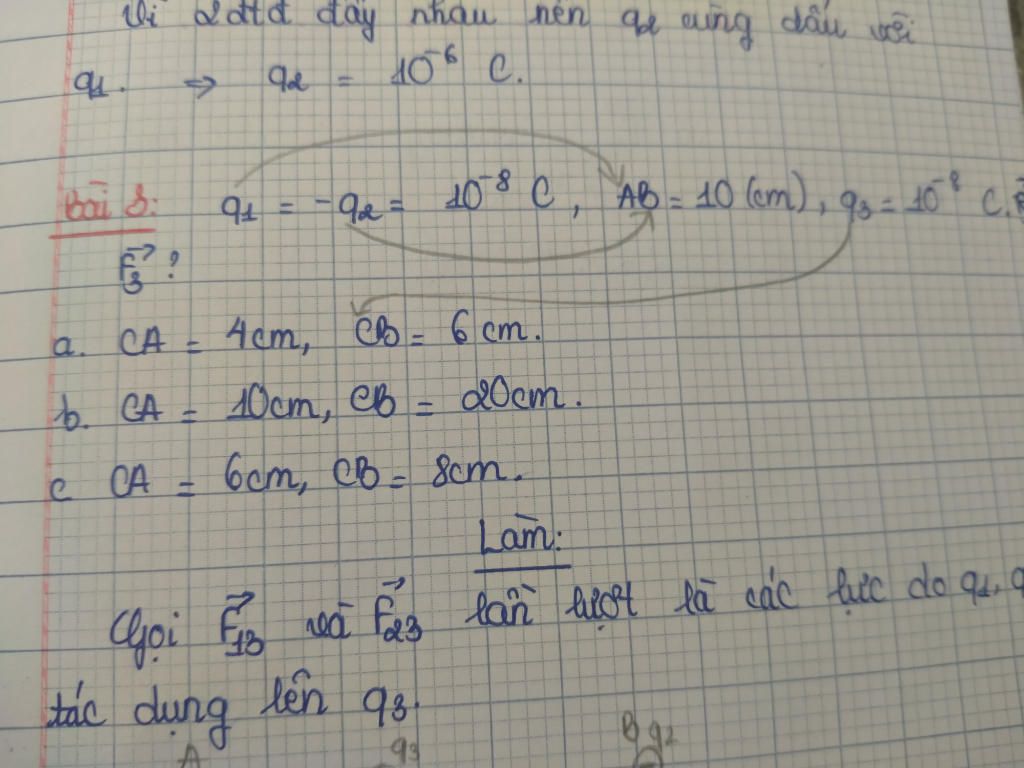 Vì 2đtđ đẩy nhau nên q2 cùng dấu với
q1. ⇒ q2 = 10⁻⁶ C.
Bài 3: q1 = -q2 = 10⁻⁸ C, AB = 10 (cm), q3 = 10⁻⁸ C.
F⃗3 ?
a. CA = 4cm, CB = 6cm.
b. CA = 10cm, CB = 20cm.
c CA = 6cm, CB = 8cm.
Làm:
Gọi F⃗13 và F⃗23 lần lượt là các lực do q1, q
tác dụng lên q3.
A q3 B q2